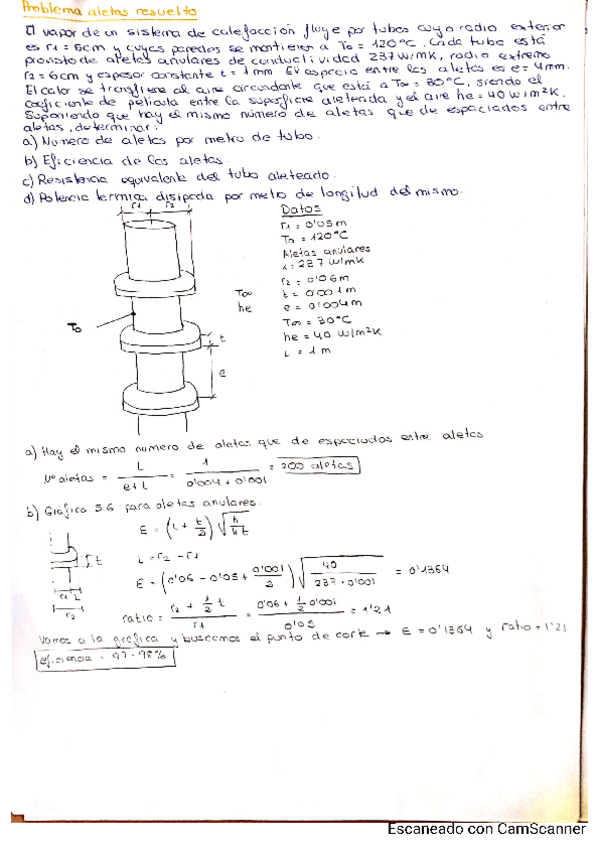 Problema aletas resuelto
El vapor de un sistema de calefacción fluye por tubos cuyo radio exterior
es r1 = 5cm y cuyas paredes se mantienen a To = 120°C. Cada tubo está
provisto de aletas anulares de conductividad 237 W/mK, radio extremo
r2 = 6cm y espesor constante t = 1mm El espacio entre las aletas es e = 4mm.
El calor se transfiere al aire circundante que está a T∞ = 30°C, siendo el
coeficiente de película entre la superficie aleteada y el aire he = 40 W/m²K.
Suponiendo que hay el mismo número de aletas que de espaciados entre
aletas, determinar:
a) Numero de aletas por metro de tubo.
b) Eficiencia de las aletas.
c) Resistencia equivalente del tubo aleteado.
d) Potencia termica disipada por metro de longitud del mismo.
r1 r2
Datos
r1 = 0'05m
To = 120°C
Aletas anulares
237 W/mK
r2 = 0'06m
T∞ t = 0'001m
he e = 0'004m
To T∞ = 30°C
t he = 40 W/m²K
L = 1m
e
a) Hay el mismo numero de aletas que de espaciados entre aletas
Nº aletas = L / (e+t) = 1 / (0'004 + 0'001) = 200 aletas
b) Grafica 5.6 para aletas anulares.
E = (L + t/2) √(h/kt)
t
L = r2 - r1
E = (0'06 - 0'05 + 0'001/2) √(40 / (237 · 0'001)) = 0'1364
r1 L
r2
ratio = (r2 + 1/2 t) / r1 = (0'06 + 1/2 0'001) / 0'05 = 1'21
Vamos a la gráfica y buscamos el punto de corte → E = 0'1364 y ratio = 1'21
eficiencia = 97-98%
Escaneado con CamScanner